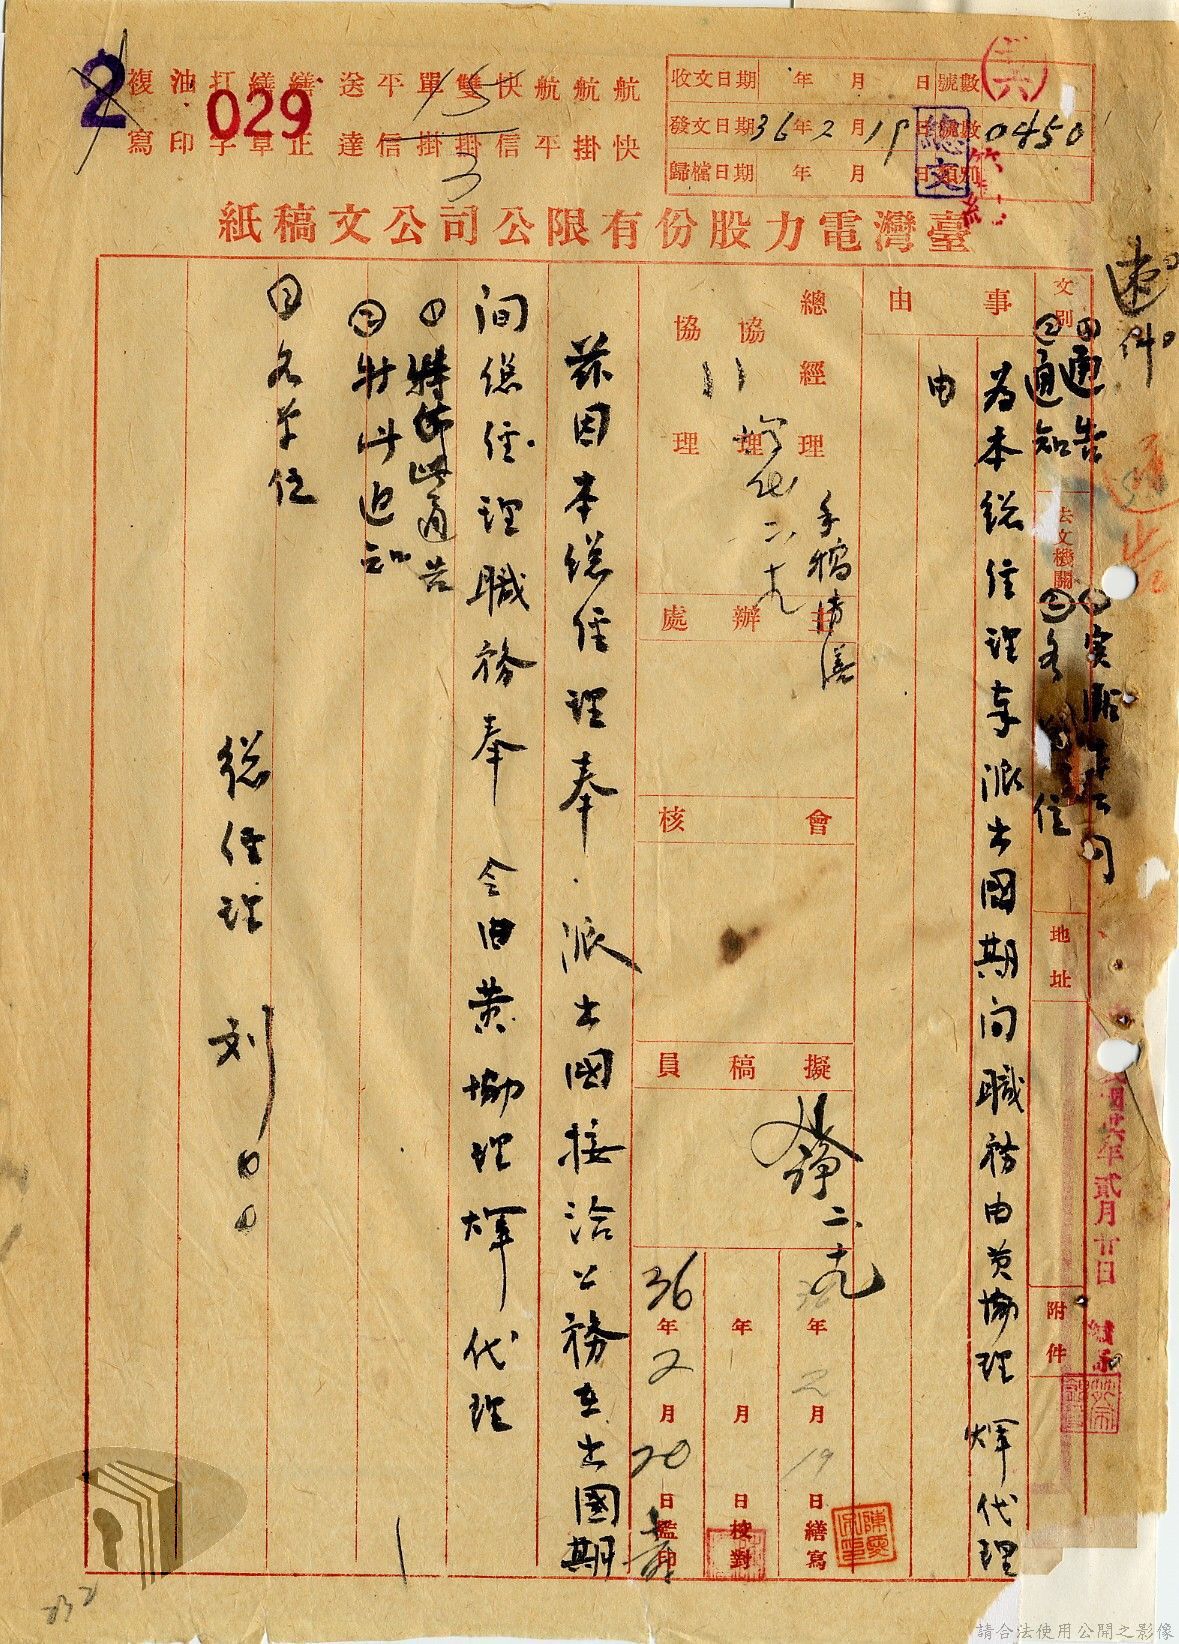 收文日期 年 月 日 號數
發文日期 36年2月19日 號數 0450
歸檔日期 年 月 日 類別
總文
航快
航掛
航平
快信
雙掛
單掛
平信
送達
繕正
繕章
打字
油印
複寫
15
3
2
029
臺灣電力股份有限公司公文稿紙
速件
文別
①通告
②通知
去文機關
②各單位
地址
附件
事由
為本総經理奉派出國期间職務由黃協理煇代理
由
總經理
協理
協理
主辦處
會核
擬稿員
二、十九
年2月19日繕寫
年 月 日校對
36年2月20日監印
茲因本総經理奉 派出國接洽公務在出國期
间総經理職務奉 令由黃協理煇代理
①特佈此通告
②
①各单位
総經理 刘
請合法使用公開之影像